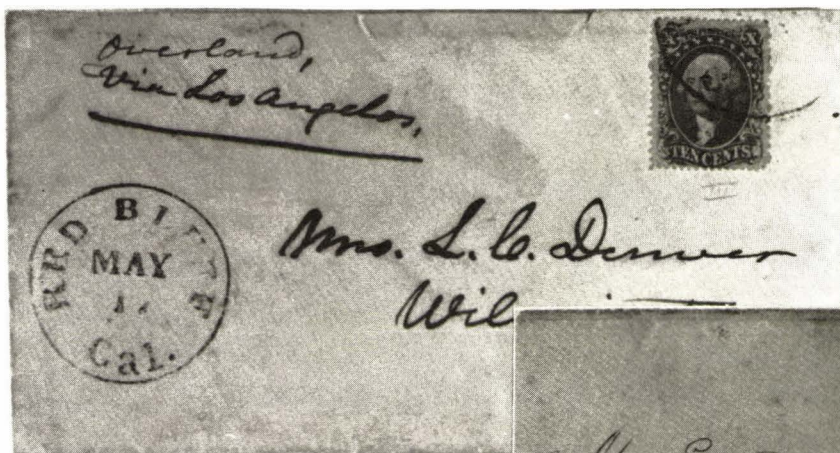 Overland,
Via Los Angelos,
X X
TEN CENTS
III
RRD BLUFF
MAY
17
Cal.
Mrs. L. C. Denver
Wil